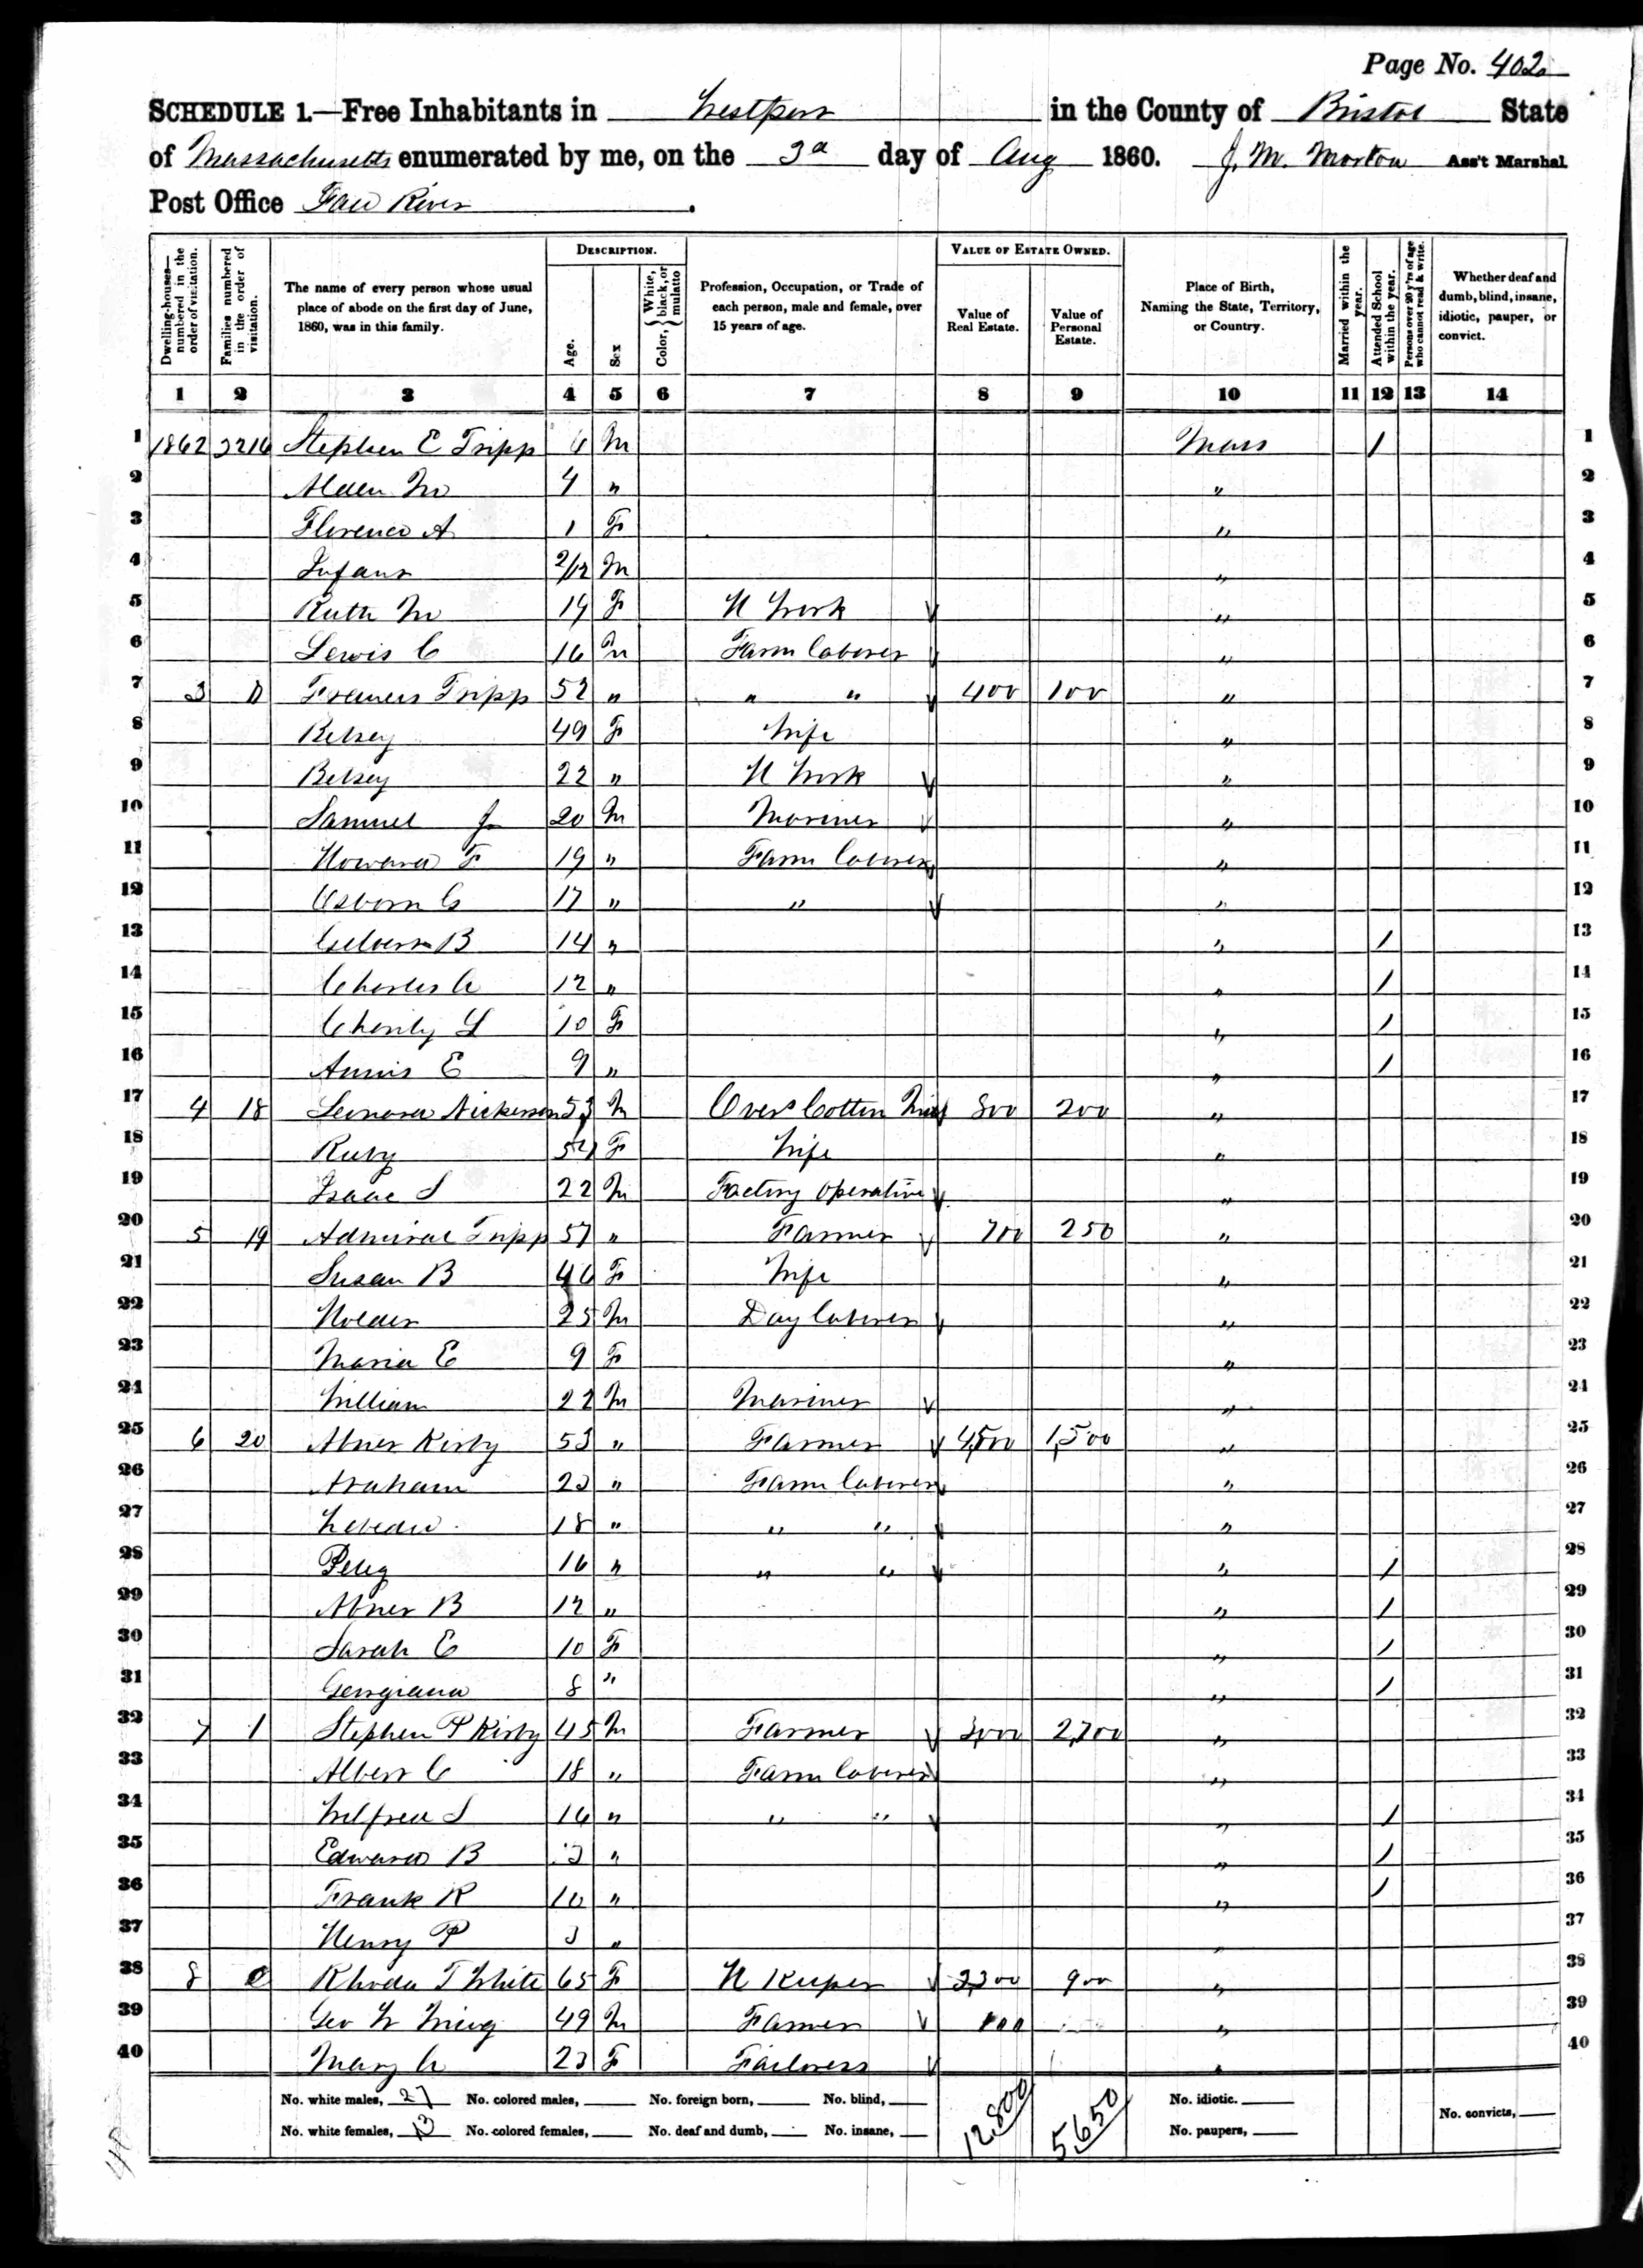 Page No. 402
SCHEDULE 1.—Free Inhabitants in Westport in the County of Bristol State
of Massachusetts enumerated by me, on the 3d day of Aug 1860. J. M. Morton Ass't Marshal
Post Office Fall River.
Dwelling-houses—numbered in the order of visitation.
Families numbered in the order of visitation.
The name of every person whose usual place of abode on the first day of June, 1860, was in this family.
DESCRIPTION.
Age.
Sex
Color, { White, black, or mulatto
Profession, Occupation, or Trade of each person, male and female, over 15 years of age.
VALUE OF ESTATE OWNED.
Value of Real Estate.
Value of Personal Estate.
Place of Birth, Naming the State, Territory, or Country.
Married within the year.
Attended School within the year.
Persons over 20 y'rs of age who cannot read & write.
Whether deaf and dumb, blind, insane, idiotic, pauper, or convict.
1 2 3 4 5 6 7 8 9 10 11 12 13 14
1 1862 2216 Stephen E Tripp 6 M Mass / 1
2 Alden M 4 " " 2
3 Florence A 1 F " 3
4 Infant 2/12 M " 4
5 Ruth M 19 F H Work " 5
6 Lewis C 16 M Farm Laborer " 6
7 3 Tripp 52 " " " 400 100 " 7
8 Betsey 49 F Wife " 8
9 Betsey 22 " H Work " 9
10 Samuel Jr 20 M Mariner " 10
11 Howard F 19 " Farm Laborer " 11
12 Osborn C 17 " " " 12
13 B 14 " " / 13
14 Charles A 12 " " / 14
15 Charity L 10 F " / 15
16 Annis E 9 " " / 16
17 4 18 Leonard Nickerson 53 M Overs Cotton Mill 200 " 17
18 Ruby 54 F Wife " 18
19 Isaac S 22 M Factory Operative " 19
20 5 19 Admiral Tripp 57 " Farmer 700 250 " 20
21 Susan B 46 F Wife " 21
22 Holder 25 M Day Laborer " 22
23 Maria E 9 F " 23
24 William 22 M Mariner " 24
25 6 20 Abner Kirby 53 " Farmer 4,500 1,500 " 25
26 Abraham 23 " Farm Laborer " 26
27 18 " " " " 27
28 Peleg 16 " " " " / 28
29 Abner B 12 " " / 29
30 Sarah E 10 F " / 30
31 Georgiana 8 " " / 31
32 7 1 Stephen P Kirby 45 M Farmer 3,000 2,700 " 32
33 Albert C 18 " Farm Laborer " 33
34 Wilfred S 16 " " " " / 34
35 Edward B " " / 35
36 Frank R 10 " " / 36
37 Henry P 3 " " 37
38 8 2 Rhoda T White 65 F H Keeper 900 " 38
39 Geo W 49 M Farmer " 39
40 Mary A 23 F Tailoress " 40
No. white males, 27 No. colored males, No. foreign born, No. blind, 12,800 5,650 No. idiotic. No. convicts,
No. white females, 13 No. colored females, No. deaf and dumb, No. insane, No. paupers,
40